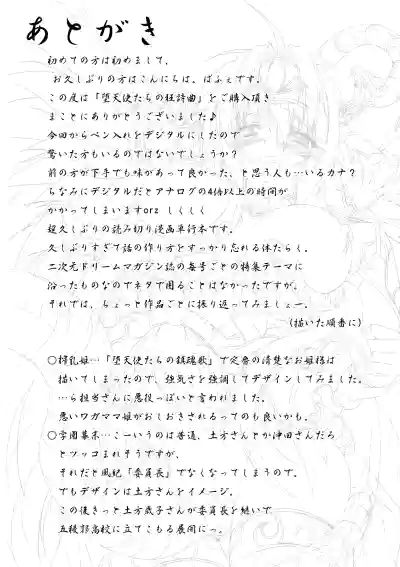 あとがき
初めての方は初めまして、
お久しぶりの方はこんにちは。ぱふぇです。
この度は『堕天使たちの狂詩曲』をご購入頂き
まことにありがとうございました♪
今回からペン入れをデジタルにしたので
驚いた方もいるのではないでしょうか？
前の方が下手でも味があって良かった、と思う人も…いるカナ？
ちなみにデジタルだとアナログの4倍以上の時間が
かかってしまいますorz しくしく
超久しぶりの読み切り漫画単行本です。
久しぶりすぎて話の作り方をすっかり忘れる体たらく。
二次元ドリームマガジン誌の毎号ごとの特集テーマに
沿ったものなのでネタで困ることはなかったですが。
それでは、ちょっと作品ごとに振り返ってみましょー。
(描いた順番に)
○搾乳姫…『堕天使たちの鎮魂歌』で定番の清楚なお姫様は
描いてしまったので、強気さを強調してデザインしてみました。
…ら担当さんに悪役っぽいと言われました。
悪いワガママ姫がおしおきされるってのも良いかも。
○学園幕末…こーいうのは普通、土方さんとか沖田さんだろ
とツッコまれそうですが、
それだと風紀『委員長』でなくなってしまうので。
でもデザインは土方さんをイメージ。
この後きっと土方歳子さんが委員長を継いで
五稜郭高校に立てこもる展開にっ。